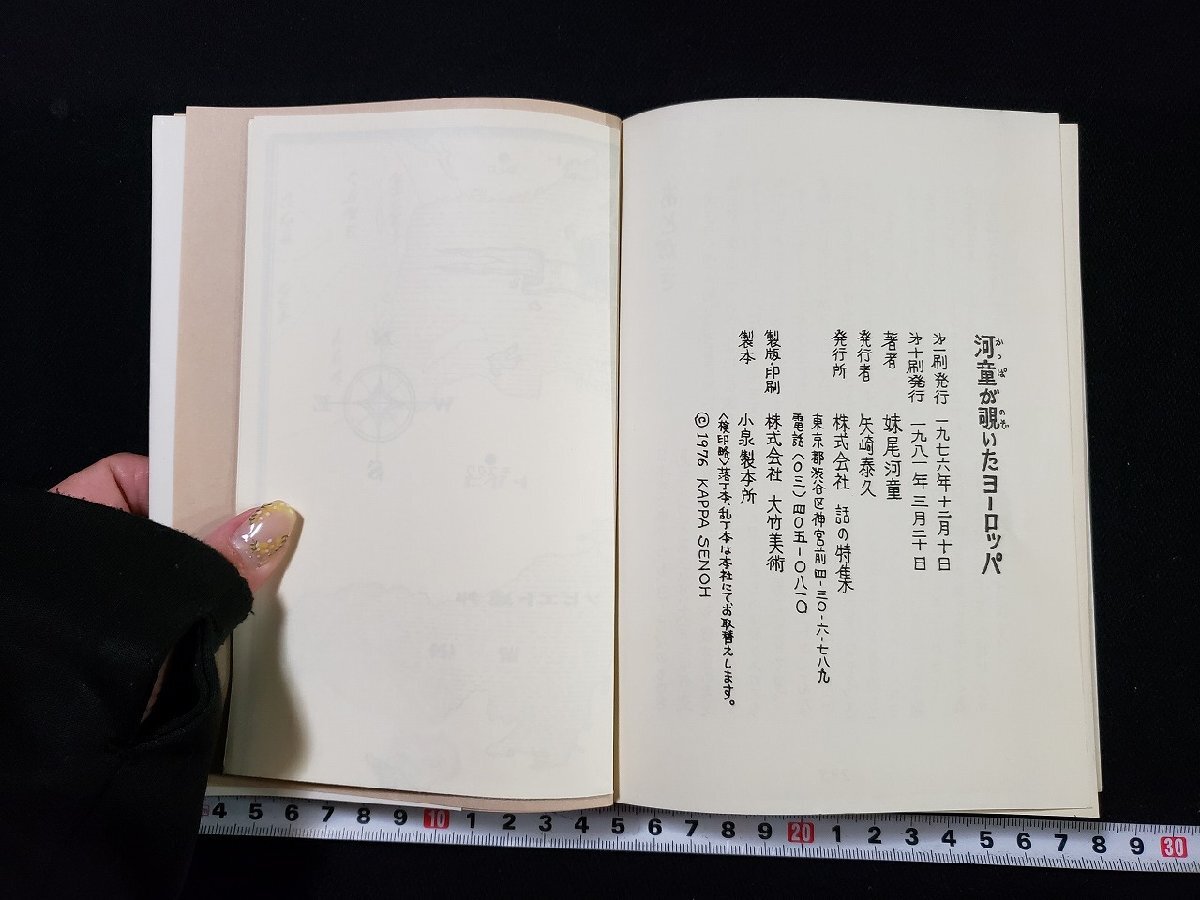 河童が覗いたヨーロッパ
かっぱ
のぞ
才一刷発行 一九七六年十二月十日
才十刷発行 一九八一年三月二十日
著者 妹尾河童
発行者 矢崎泰久
発行所 株式会社 話の特集
東京都渋谷区神宮前四-三〇-六-七八九
電話(〇三)四〇五-〇八一〇
製版・印刷 株式会社 大竹美術
製本 小泉製本所
<検印略>落丁本、乱丁本は本社にてお取替えします。
© 1976 KAPPA SENOH
4 5 6 7 8 9 10 1 2 3 4 5 6 7 8 9 20 1 2 3 4 5 6 7 8 9 30